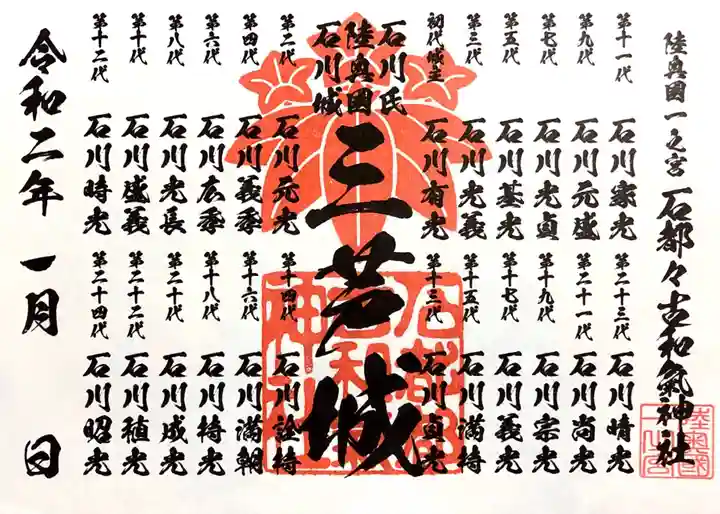 陸奥國一之宮 石都々古和氣神社
第十一代 石川家光
第九代 石川元盛
第七代 石川光貞
第五代 石川基光
第三代 石川光義
初代城主 石川有光
石川氏
陸奥國
石川城
三芦城
第二代 石川元光
第四代 石川義季
第六代 石川広季
第八代 石川光長
第十代 石川盛義
第十二代 石川時光
第二十三代 石川晴光
第二十一代 石川尚光
第十九代 石川宗光
第十七代 石川義光
第十五代 石川満持
第十三代 石川貞光
第十四代 石川詮持
第十六代 石川満朝
第十八代 石川持光
第二十代 石川成光
第二十二代 石川稙光
第二十四代 石川昭光
令和二年 一月 日